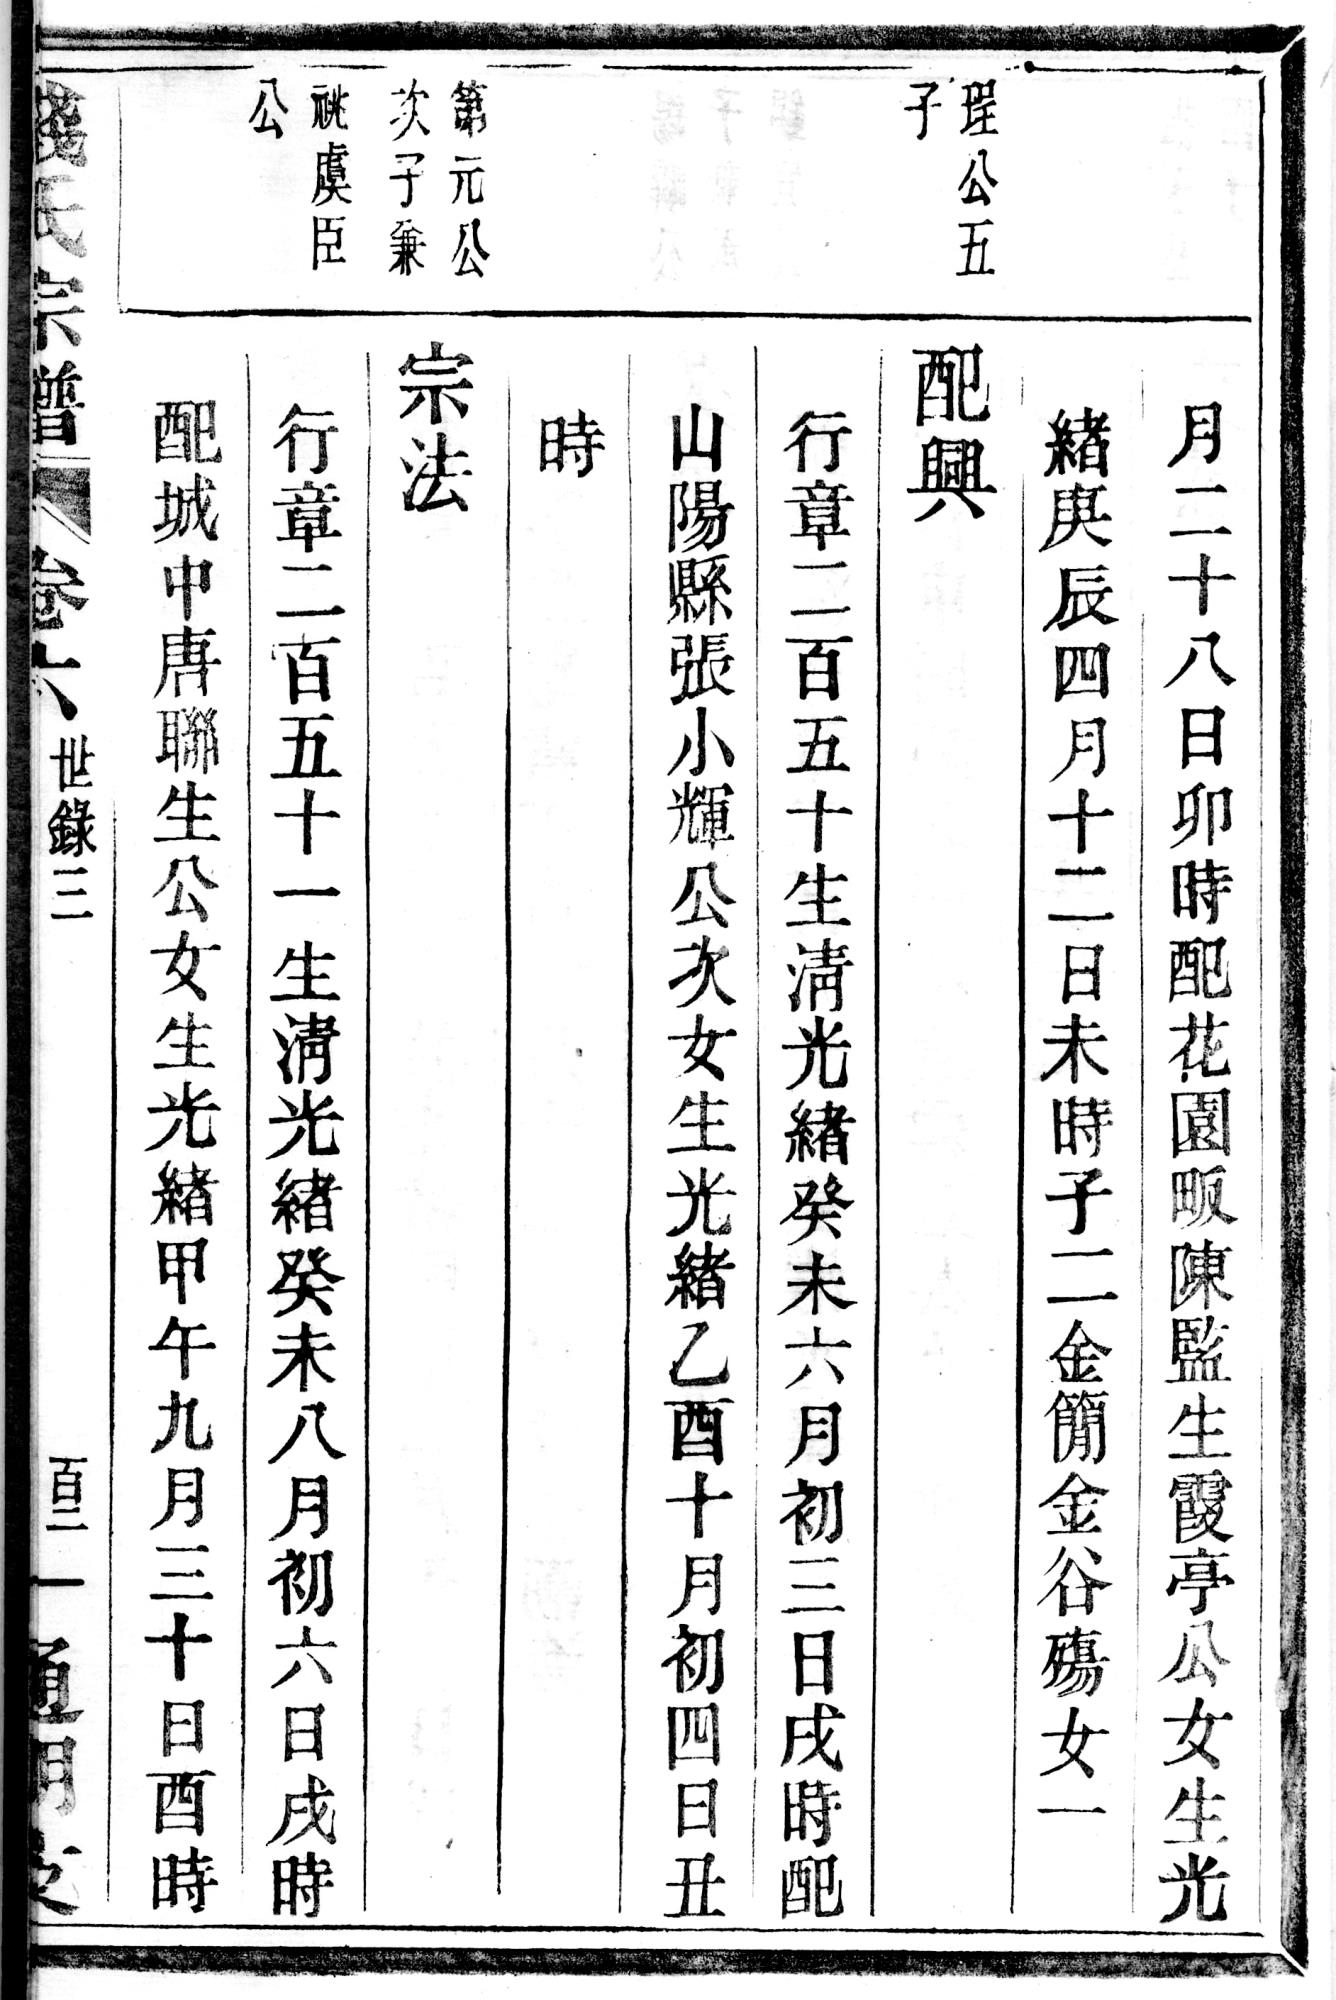 月二十八日卯時配花園畈陳監生霞亭公女生光
緒庚辰四月十二日未時子二金簡金谷殤女一
珵公五
子
配興
行章二百五十生清光緒癸未六月初三日戌時配
山陽縣張小輝公次女生光緒乙酉十月初四日丑
時
第元公
次子兼
祧虞臣
公
宗法
行章二百五十一生清光緒癸未八月初六日戌時
配城中唐聯生公女生光緒甲午九月三十日酉時
錢氏宗譜 卷六 世錄三 百二一 通明支